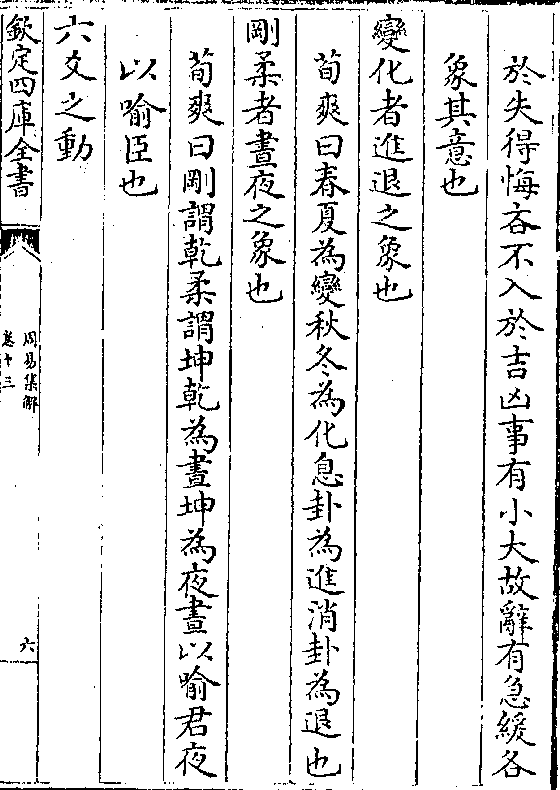 於失得悔吝不入於吉凶事有小大故辭有急緩各
象其意也
變化者進退之象也
荀爽曰春夏為變秋冬為化息卦為進消卦為退也
剛柔者晝夜之象也
荀爽曰剛謂乾柔謂坤乾為晝坤為夜晝以喻君夜
以喻臣也
六爻之動
欽定四庫全書
周易集解
卷十三
六